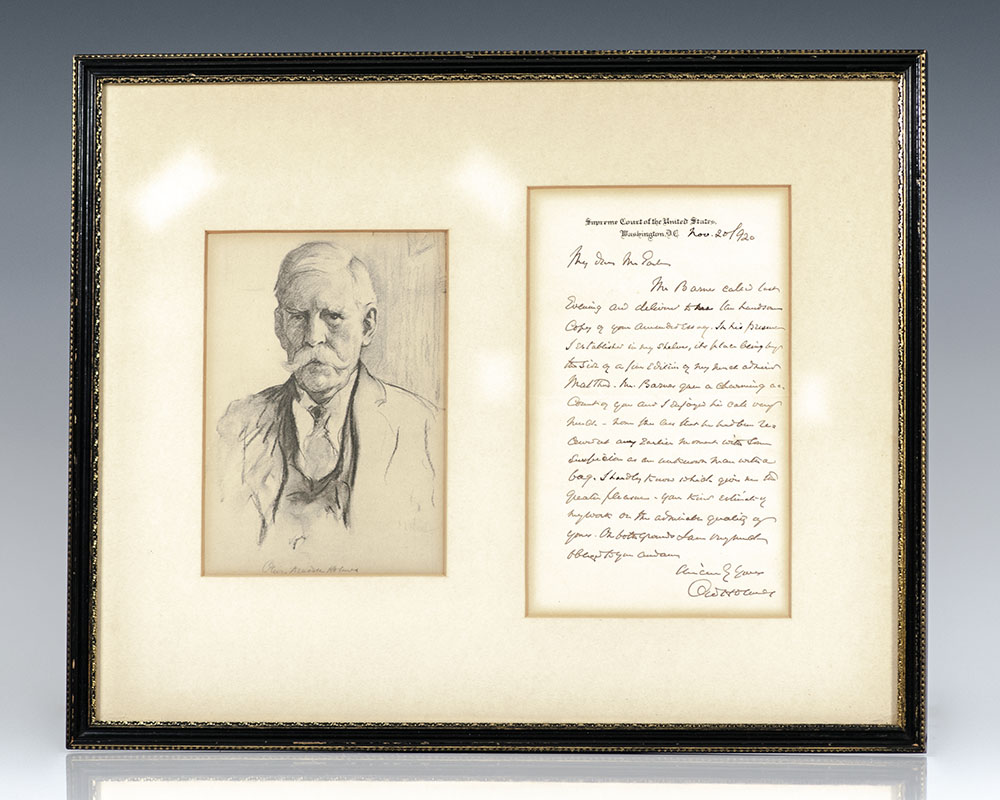 Supreme Court of the United States,
Washington, D.C. Nov. 20/920
My dear Mr
Mr Barnes called last
Evening and delivered to me the handsome
Copy of your amended essay. In his presence
I established in my shelves, its place being by
the side of a fine edition of my much admired
Mr. Barnes gave a charming ac-
Count of you and I enjoyed his call very
much - none the less that he had been re-
ceived at an earlier moment with some
suspicion as an unknown man with a
bag. I hardly know which gives me the
greater pleasure - your kind estimate of
my work or the admirable quality of
yours. On both grounds I am very much
obliged to you and am
Sincerely Yours
O W Holmes
Oliver Wendell Holmes